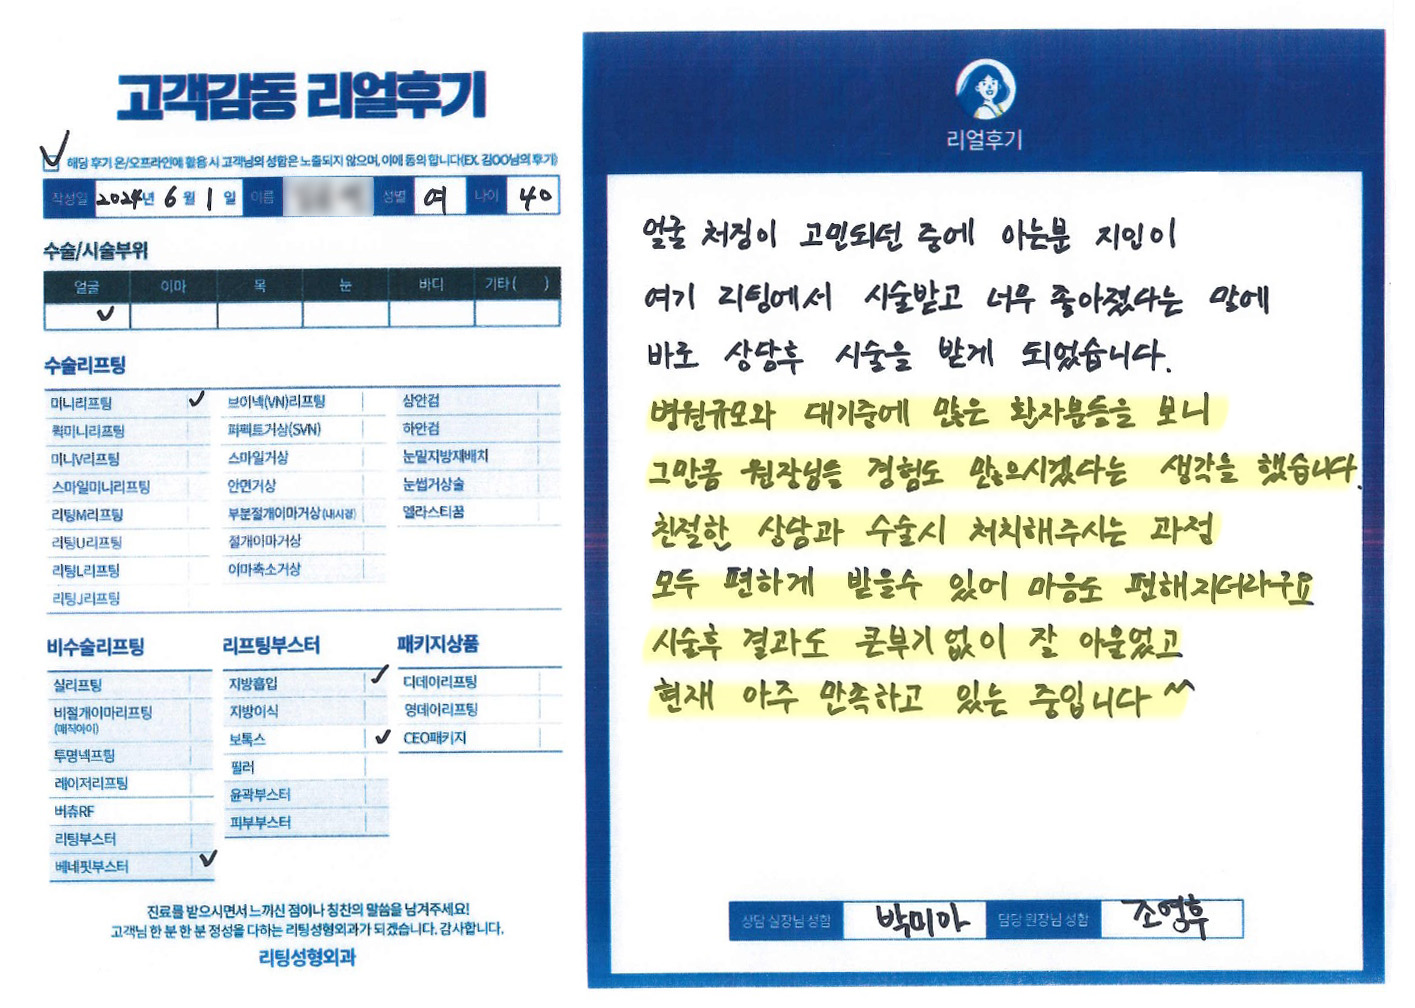 고객감동 리얼후기
해당 후기 온/오프라인에 활용 시 고객님의 성함은 노출되지 않으며, 이에 동의 합니다(EX. 김OO님의 후기)
작성일 2024년 6월 1일 이름 성별 여 나이 40
수술/시술부위
얼굴 이마 목 눈 바디 기타( )
수술리프팅
미니리프팅 브이넥(VN)리프팅 상안검
퀵미니리프팅 퍼펙트거상(SVN) 하안검
미니V리프팅 스마일거상 눈밑지방재배치
스마일미니리프팅 안면거상 눈썹거상술
리팅M리프팅 부분절개이마거상(내시경) 엘라스티꿈
리팅U리프팅 절개이마거상
리팅L리프팅 이마축소거상
리팅J리프팅
비수술리프팅
실리프팅
비절개이마리프팅
(매직아이)
투명넥프팅
레이저리프팅
버츄RF
리팅부스터
베네핏부스터
리프팅부스터
지방흡입
지방이식
보톡스
필러
윤곽부스터
피부부스터
패키지상품
디데이리프팅
영데이리프팅
CEO패키지
진료를 받으시면서 느끼신 점이나 칭찬의 말씀을 남겨주세요!
고객님 한 분 한 분 정성을 다하는 리팅성형외과가 되겠습니다. 감사합니다.
리팅성형외과
리얼후기
얼굴 처짐이 고민되던 중에 아는분 지인이
여기 리팅에서 시술받고 너무 좋아졌다는 말에
바로 상담후 시술을 받게 되었습니다.
병원규모와 대기중에 많은 환자분들을 보니
그만큼 원장님들 경험도 많으시겠다는 생각을 했습니다.
친절한 상담과 수술시 처치해주시는 과정
모두 편하게 받을수 있어 마음도 편해지더라구요
시술후 결과도 큰부기없이 잘 아물었고
현재 아주 만족하고 있는 중입니다 ^^
상담 실장님 성함 박미아 담당 원장님 성함 조영후